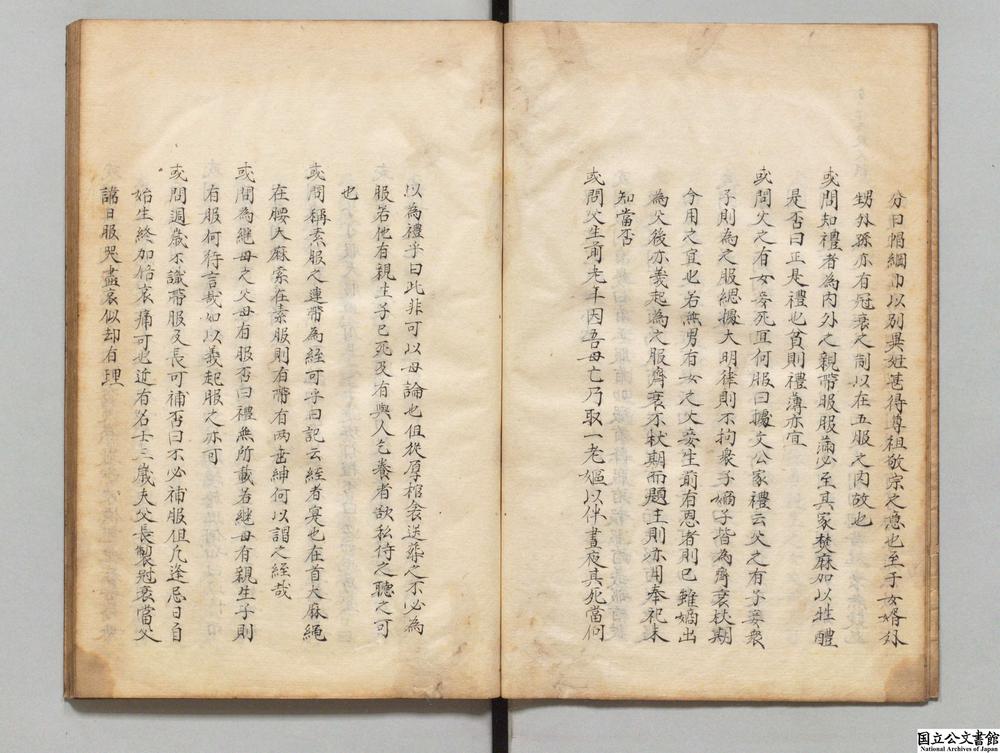 分曰帽綱巾以別異姓甚得尊祖敬宗之意也至于女婿外
甥外孫亦有冠衰之制以在五服之内故也
或問知禮者為内外之親帶服服滿必至其家焚麻如以牲醴
是否曰正是禮也貧則禮薄亦宜
或問父之有女妾死宜何服曰據文公家禮云父之有子妾衆
子則為之服緦據大明律則不拘衆子嫡子皆為齊衰杖期
今用之宜也若無男有女之父妾生前有恩者則已雖嫡出
為父後亦義起為之服齊衰不杖期而題主則亦用奉祀未
知當否
或問父生前老年因吾母亡乃取一老嫗以伴晝夜其死當何
以為禮乎曰此非可以母論也但從厚棺衾送葬之不必為
服若他有親生子已死及有與人乞養者欲私待之聽之可
也
或問稱素服之連帶為絰可乎曰記云絰者實也在首大麻繩
在腰大麻索在素服則有帶有两齿紳何以謂之絰哉
或問為継母之父母有服否曰禮無所載若継母有親生子則
有服何待言哉如以義起服之亦可
或問週歲不識帶服及長可補否曰不必補服但凡逢忌日自
始生終加倍哀痛可也近有名士三歲夫父長製冠衰當父
諱日服哭盡哀似却有理
国立公文書館
National Archives of Japan